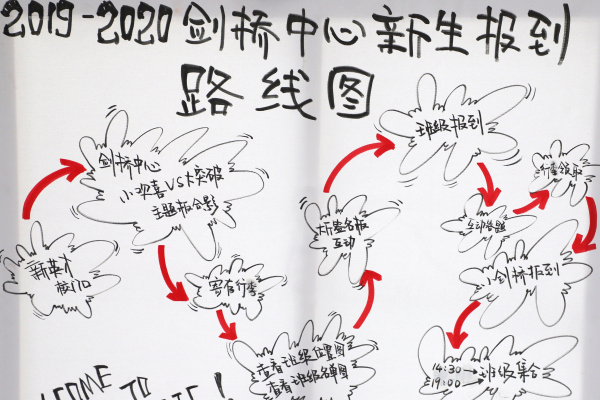 2019-2020剑桥中心新生报到
路线图
新生才
校门口
剑桥中心
小欢喜VS大突破
主题板合影
寄存行李
查看班级位置图
查看班级名单图
大型签名板
互动
班级报到
互动答题
行李领取
剑桥报到
14:30
19:00
班级集合
WELCOME TO